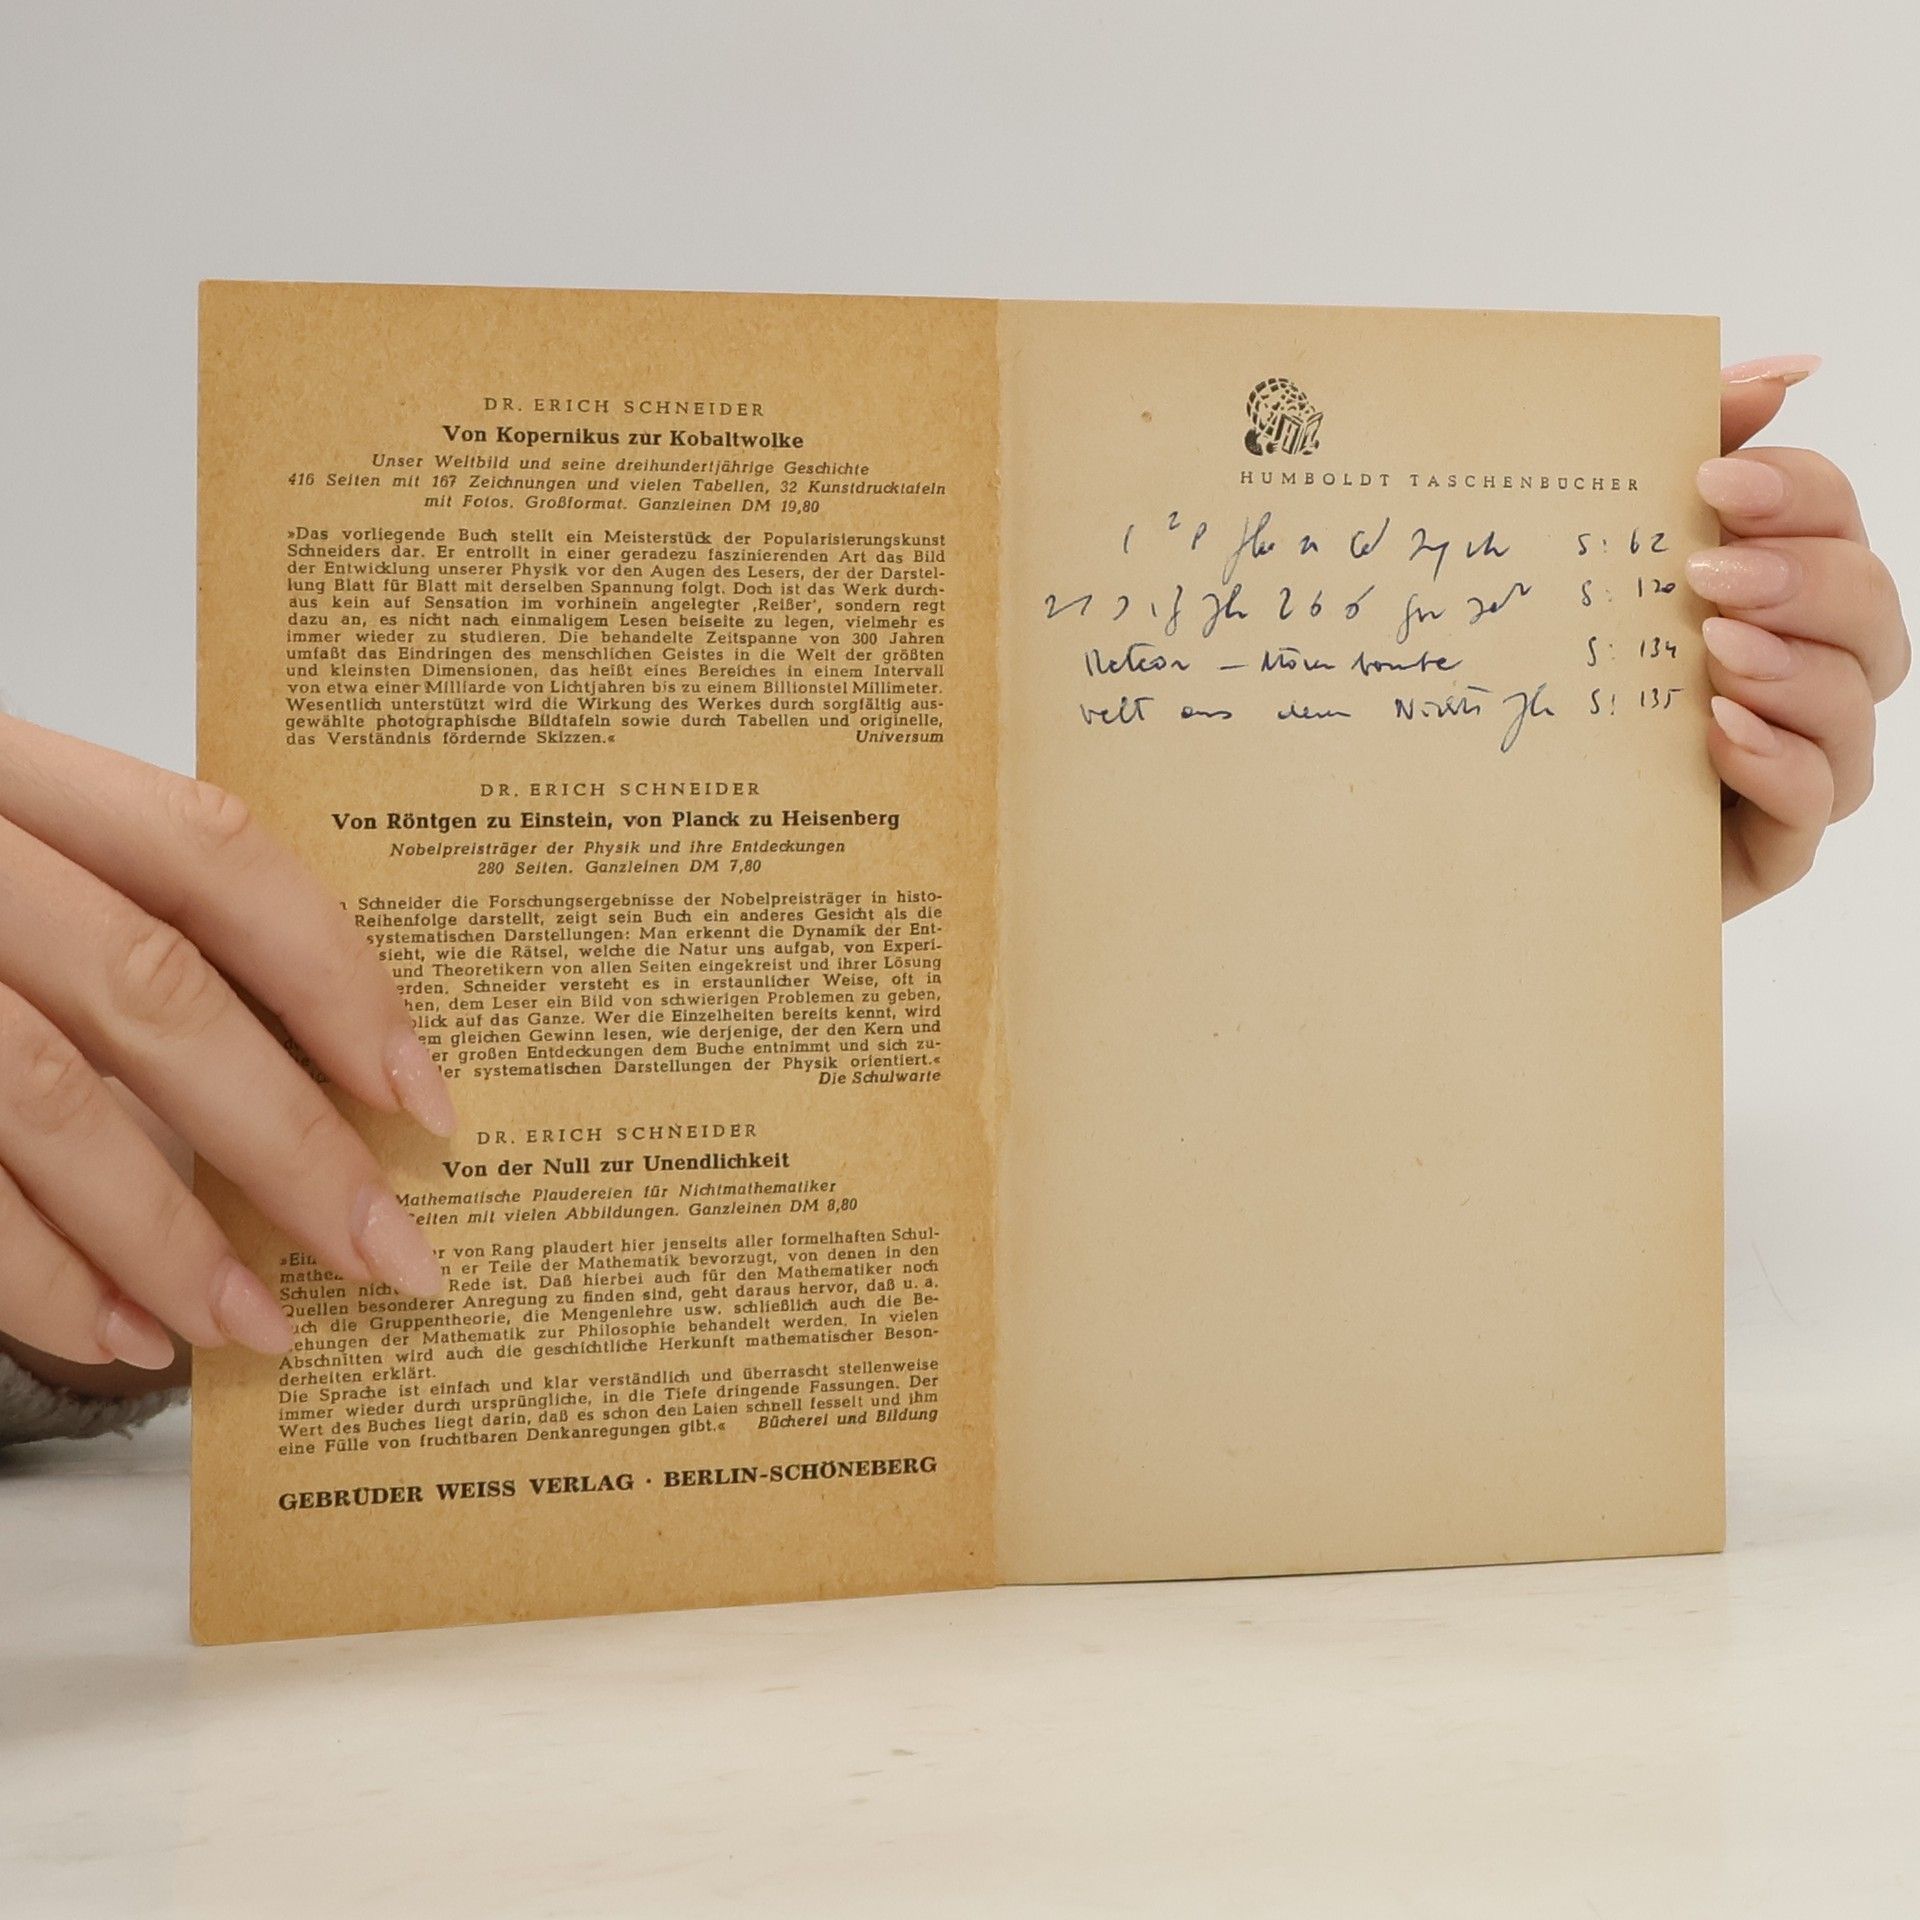 DR. ERICH SCHNEIDER
Von Kopernikus zur Kobaltwolke
Unser Weltbild und seine dreihundertjährige Geschichte
416 Seiten mit 167 Zeichnungen und vielen Tabellen, 32 Kunstdrucktafeln
mit Fotos. Großformat. Ganzleinen DM 19,80
»Das vorliegende Buch stellt ein Meisterstück der Popularisierungskunst
Schneiders dar. Er entrollt in einer geradezu faszinierenden Art das Bild
der Entwicklung unserer Physik vor den Augen des Lesers, der der Darstel-
lung Blatt für Blatt mit derselben Spannung folgt. Doch ist das Werk durch-
aus kein auf Sensation im vorhinein angelegter ‚Reißer‘, sondern regt
dazu an, es nicht nach einmaligem Lesen beiseite zu legen, vielmehr es
immer wieder zu studieren. Die behandelte Zeitspanne von 300 Jahren
umfaßt das Eindringen des menschlichen Geistes in die Welt der größten
und kleinsten Dimensionen, das heißt eines Bereiches in einem Intervall
von etwa einer Milliarde von Lichtjahren bis zu einem Billionstel Millimeter.
Wesentlich unterstützt wird die Wirkung des Werkes durch sorgfältig aus-
gewählte photographische Bildtafeln sowie durch Tabellen und originelle,
das Verständnis fördernde Skizzen.« Universum
DR. ERICH SCHNEIDER
Von Röntgen zu Einstein, von Planck zu Heisenberg
Nobelpreisträger der Physik und ihre Entdeckungen
280 Seiten. Ganzleinen DM 7,80
Schneider die Forschungsergebnisse der Nobelpreisträger in histo-
Reihenfolge darstellt, zeigt sein Buch ein anderes Gesicht als die
systematischen Darstellungen: Man erkennt die Dynamik der Ent-
sieht, wie die Rätsel, welche die Natur uns aufgab, von Experi-
und Theoretikern von allen Seiten eingekreist und ihrer Lösung
erden. Schneider versteht es in erstaunlicher Weise, oft in
hen, dem Leser ein Bild von schwierigen Problemen zu geben,
blick auf das Ganze. Wer die Einzelheiten bereits kennt, wird
em gleichen Gewinn lesen, wie derjenige, der den Kern und
er großen Entdeckungen dem Buche entnimmt und sich zu-
ler systematischen Darstellungen der Physik orientiert.«
Die Schulwarte
DR. ERICH SCHNEIDER
Von der Null zur Unendlichkeit
Mathematische Plaudereien für Nichtmathematiker
Seiten mit vielen Abbildungen. Ganzleinen DM 8,80
»Ein er von Rang plaudert hier jenseits aller formelhaften Schul-
mathe m er Teile der Mathematik bevorzugt, von denen in den
Schulen nich Rede ist. Daß hierbei auch für den Mathematiker noch
Quellen besonderer Anregung zu finden sind, geht daraus hervor, daß u. a.
auch die Gruppentheorie, die Mengenlehre usw. schließlich auch die Be-
ziehungen der Mathematik zur Philosophie behandelt werden. In vielen
Abschnitten wird auch die geschichtliche Herkunft mathematischer Beson-
derheiten erklärt.
Die Sprache ist einfach und klar verständlich und überrascht stellenweise
immer wieder durch ursprüngliche, in die Tiefe dringende Fassungen. Der
Wert des Buches liegt darin, daß es schon den Laien schnell fesselt und ihm
eine Fülle von fruchtbaren Denkanregungen gibt.« Bücherei und Bildung
GEBRÜDER WEISS VERLAG · BERLIN-SCHÖNEBERG
HUMBOLDT TASCHENBÜCHER
S: 62
S: 120
Meteor – bombe S: 134
Welt aus dem Nichts S: 135